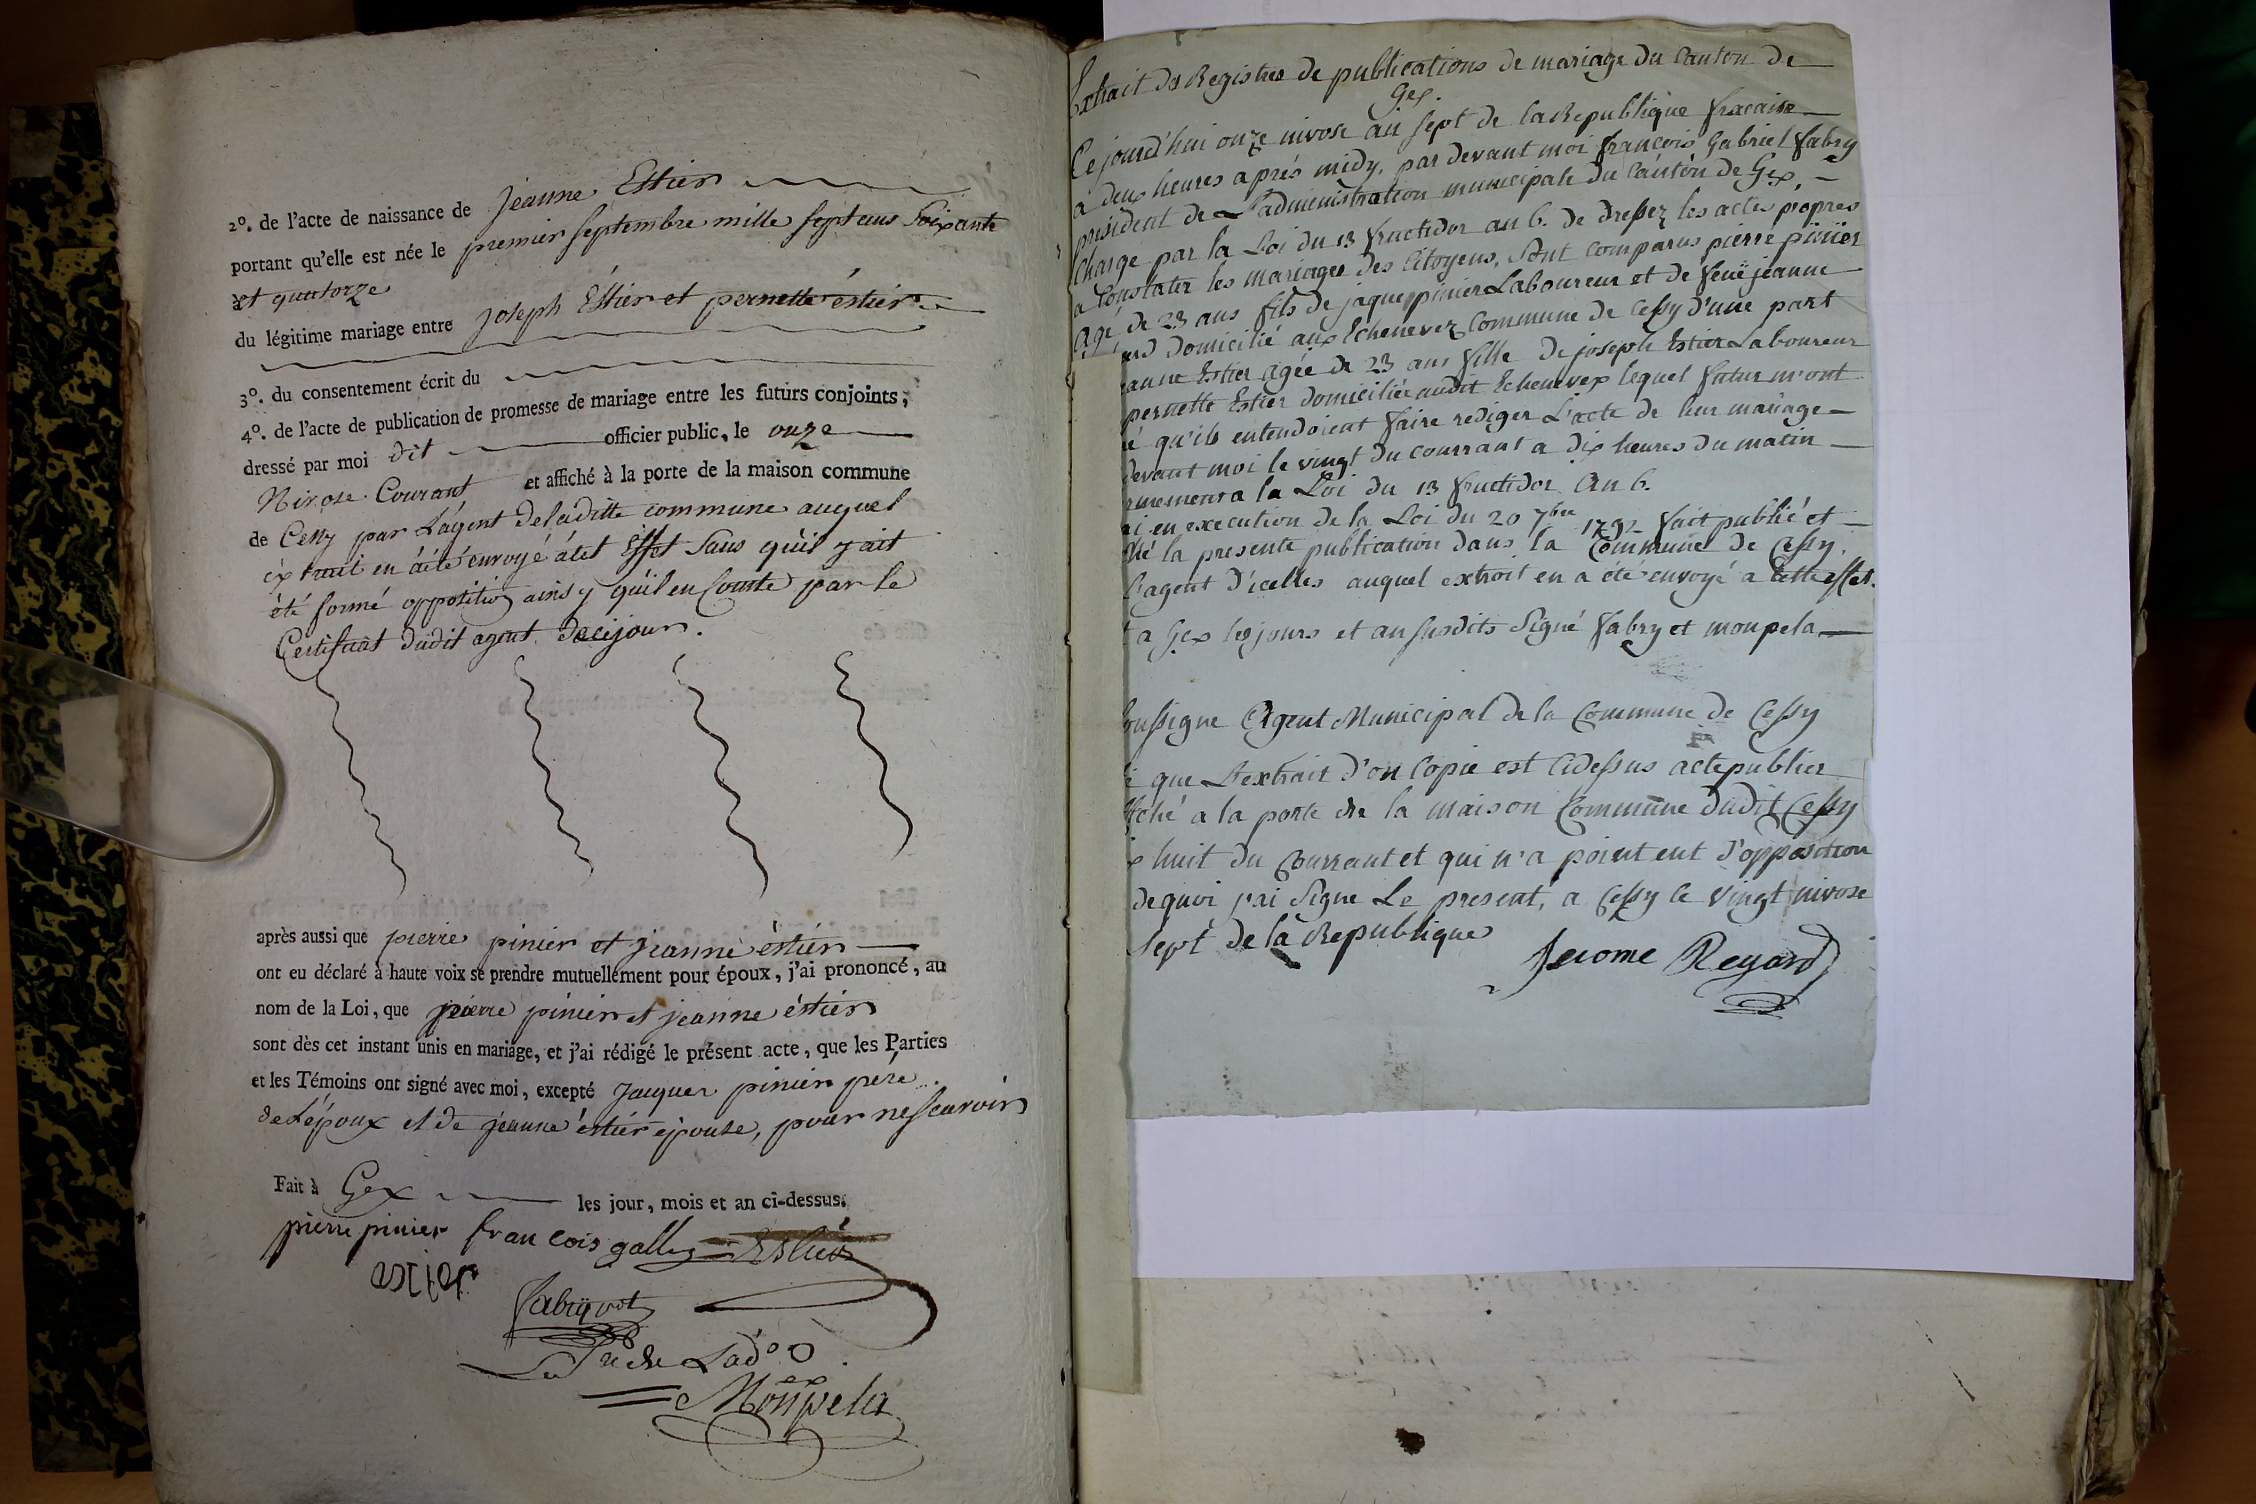 2º. de l'acte de naissance de Jeanne Estier
portant qu'elle est née le premier septembre mille sept cens Soixante
et quatorze
du légitime mariage entre Joseph Estier et pernette éstier
3º. du consentement écrit du
4º. de l'acte de publication de promesse de mariage entre les futurs conjoints,
dressé par moi dit officier public, le onze
Nivose Courant et affiché à la porte de la maison commune
de Cessy par L'agent de laditte commune auquel
extrait en a été envoyé à cet Effet Sans qu'il y ait
été formé opposition ainsy qu'il en Conste par le
Certificat dudit agent de ce jour.
après aussi que pierre pinier et jeanne éstier
ont eu déclaré à haute voix se prendre mutuellement pour époux, j'ai prononcé, au
nom de la Loi, que pierre pinier et jeanne éstier
sont dès cet instant unis en mariage, et j'ai rédigé le présent acte, que les Parties
et les Témoins ont signé avec moi, excepté Jacques pinier père
de L'époux et de jeanne éstier épouse, pour ne sçavoir
Fait à Gex les jour, mois et an ci-dessus.
pierre pinier francois gallay Estier
Fabry
Monpela
Extrait des Registres de publications de mariage du Canton de
Gex.
Cejourd'hui onze nivose an sept de la Republique fracaise
a deux heures aprés midy, par devant moi françois Gabriel fabry
president de L'administration municipale du Canton de Gex,
Chargé par la Loi du 13 fructidor an 6. de dressez les actes propres
a Constater les mariages des Citoyens, Sont comparus pierre pinier
Agé de 23 ans fils de jaque pinier Laboureur et de feuë jeanne
domicilié aux Echenevez Commune de Cessy d'une part
anne Estier agée de 23 ans fille de joseph Estier Laboureur
pernette Estier domiciliée audit Echenevex lequel futur m'ont
é qu'ils entendoient faire rediger L'acte de leur mariage
devant moi le vingt du courrant a dix heures du matin
mement a la Loi du 13 fructidor An 6.
ai en execution de la Loi du 20 7bre 1792 fait publié et
la presente publication dans la Commune de Cessy,
l'agent d'icelles auquel extrait en a été envoyé a cette effet.
a Gex les jours et an susdits Signé Fabry et monpela
oussigne Agent Municipal de la Commune de Cessy
que L'extrait d'on Copie est Cidessus acte publier
fiché a la porte de la maison Commune dudit Cessy
huit du Courrant et qui n'a point eut d'opposition
dequoi j'ai Signe Le present, a Cessy le vingt nivose
Sept de la Republique
Jerome Regard